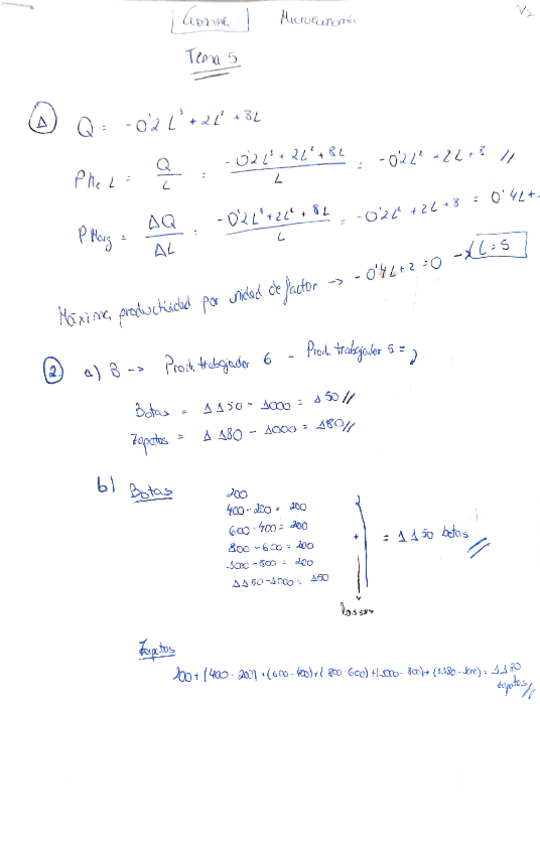 Microeconomía
Tema 5
1 Q = -0'2L³ + 2L² + 8L
PMe L = Q/L = -0'2L³ + 2L² + 8L / L = -0'2L² + 2L + 8 //
PMarg = ΔQ/ΔL = -0'2L³ + 2L² + 8L / L = -0'2L² + 2L + 8 = 0'4L+
Máxima productividad por unidad de factor → -0'4L + 2 = 0 → L = 5
2 a) B -> Prod. trabajador 6 - Prod. trabajador 5 =
Botas = 1150 - 1000 = 150 //
Zapatos = 1180 - 1000 = 180 //
b) Botas
200
400 - 200 = 200
600 - 400 = 200
800 - 600 = 200
1000 - 800 = 200
1150 - 1000 = 150
+ = 1150 botas //
Zapatos
200 + (400 - 200) + (600 - 400) + (800 - 600) + (1000 - 800) + (1180 - 1000) = 1180
zapatos //